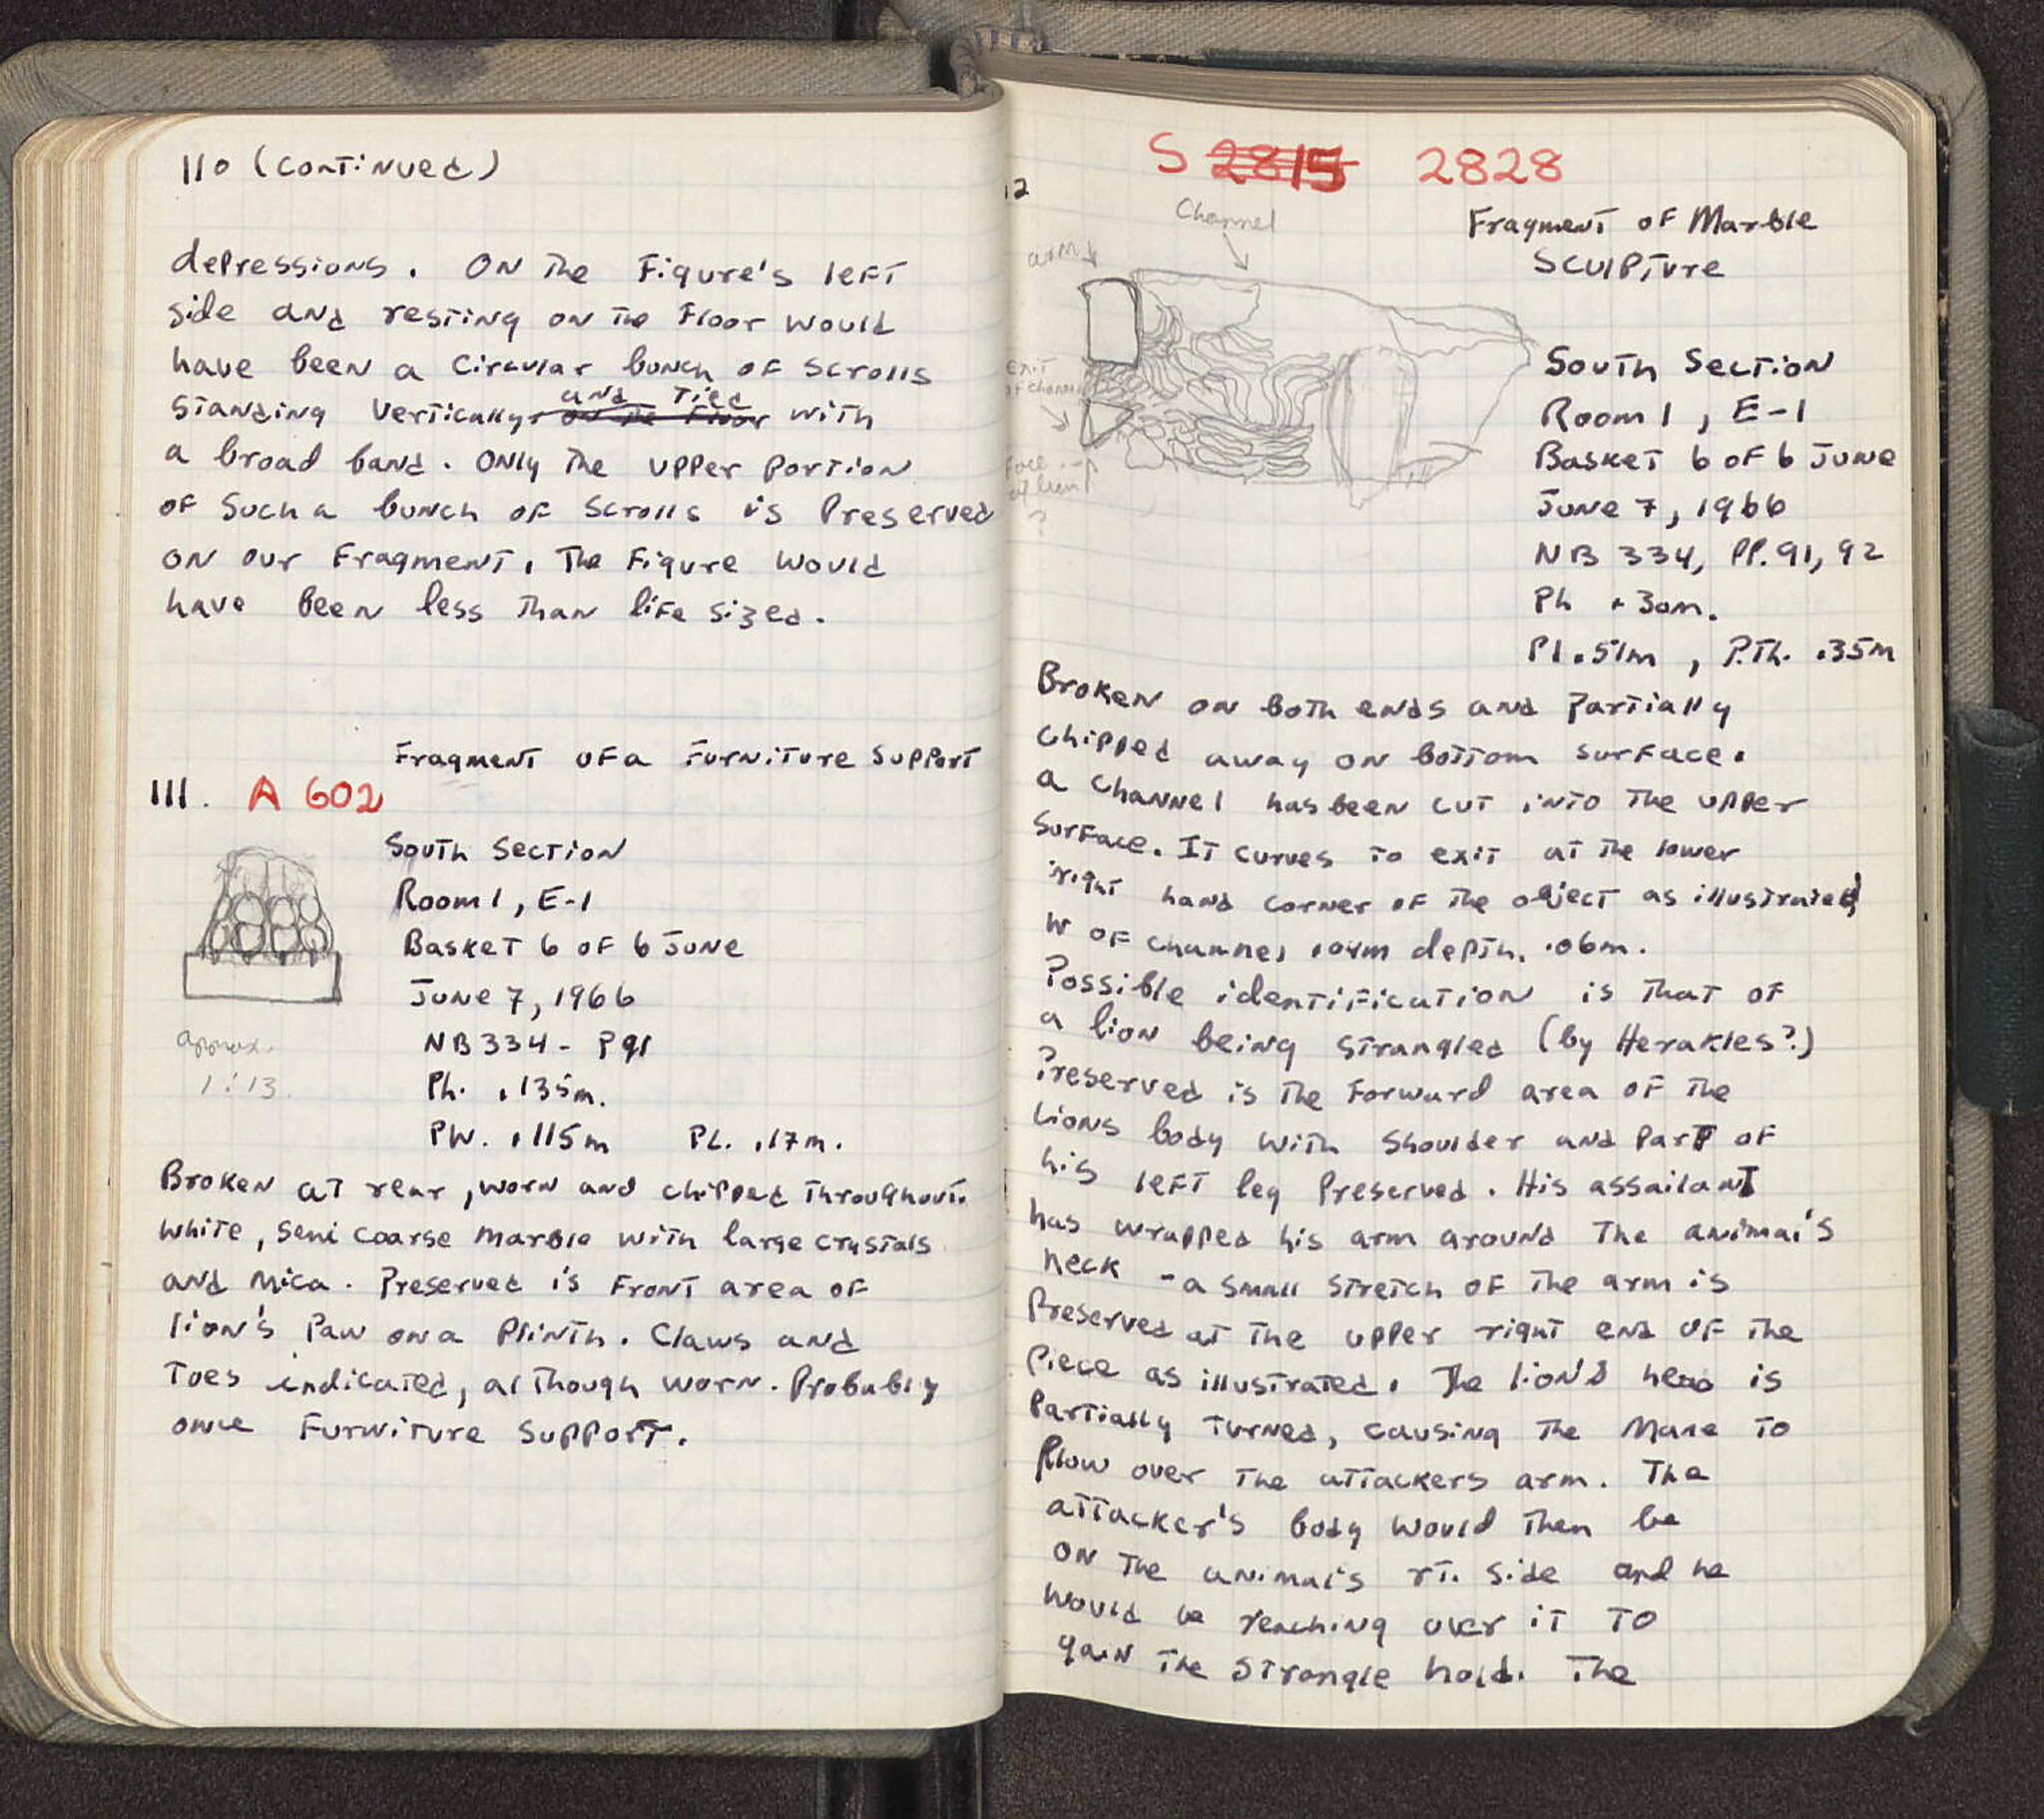 110 (continued)
depressions. On the Figure's left
side and resting on the Floor would
have been a Circular bunch of scrolls
and Tied
standing vertically, on the Floor with
a broad band. Only The upper portion
of Such a bunch of scrolls is Preserved
on our Fragment. The Figure would
have been less Than life sized.
Fragment of a Furniture Support
111. A 602
South Section
Room 1, E-1
Basket 6 of 6 June
June 7, 1966
NB 334 - P 91
Ph. .135m.
PW. .115m PL. .17m.
approx.
1:13.
Broken at rear, worn and chipped Throughout.
White, semi coarse marble with large crystals
and Mica. Preserved is Front area of
lion's Paw on a Plinth. Claws and
Toes indicated, although worn. Probably
once Furniture Support.
S 2815 2828
12
Channel
arm
exit
of channel
face
of lion
?
Fragment of Marble
Sculpture
South Section
Room 1, E-1
Basket 6 of 6 June
June 7, 1966
NB 334, PP. 91, 92
Ph .30m.
Pl .51m, P.Th. .35m
Broken on both ends and Partially
chipped away on bottom surface.
a channel has been cut into The upper
Surface. It curves to exit at The lower
right hand corner of The object as illustrated
W of channel .04m depth. .06m.
Possible identification is That of
a lion being strangled (by Herakles?)
Preserved is The Forward area of The
Lions body with shoulder and part of
his left leg Preserved. His assailant
has wrapped his arm around The animal's
neck - a small stretch of The arm is
Preserved at The upper right end of The
Piece as illustrated. The lion's head is
Partially Turned, causing The Mane To
flow over The attackers arm. The
attacker's body would Then be
on The animal's rt. side and he
would be reaching over it To
gain The strangle hold. The